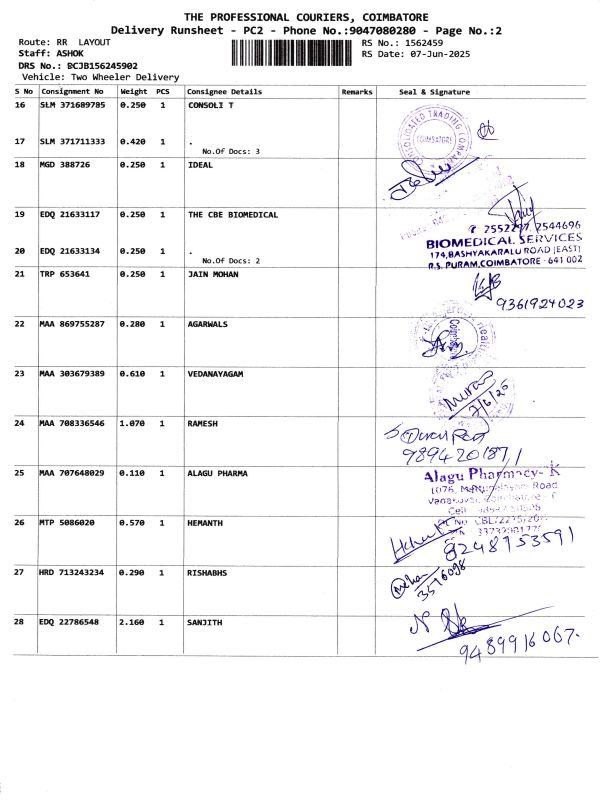 THE PROFESSIONAL COURIERS, COIMBATORE
Delivery Runsheet - PC2 - Phone No.:9047080280 - Page No.:2
Route: RR LAYOUT RS No.: 1562459
Staff: ASHOK RS Date: 07-Jun-2025
DRS No.: BCJB156245902
Vehicle: Two Wheeler Delivery
S No Consignment No Weight PCS Consignee Details Remarks Seal & Signature
16 SLM 371689785 0.250 1 CONSOLI T
COIMBATORE
17 SLM 371711333 0.420 1 .
No.Of Docs: 3
18 MGD 388726 0.250 1 IDEAL
19 EDQ 21633117 0.250 1 THE CBE BIOMEDICAL
2544696
BIOMEDICAL SERVICES
174,BASHYAKARALU ROAD (EAST)
R.S. PURAM,COIMBATORE - 641 002
20 EDQ 21633134 0.250 1 .
No.Of Docs: 2
21 TRP 653641 0.250 1 JAIN MOHAN
9361924023
22 MAA 869755287 0.280 1 AGARWALS
23 MAA 303679389 0.610 1 VEDANAYAGAM
7/6/25
24 MAA 708336546 1.070 1 RAMESH
9894201871
25 MAA 707648029 0.110 1 ALAGU PHARMA
Alagu Pharmacy-K
Road
26 MTP 5086020 0.570 1 HEMANTH
8248953591
27 HRD 713243234 0.290 1 RISHABHS
28 EDQ 22786548 2.160 1 SANJITH
9489916067.